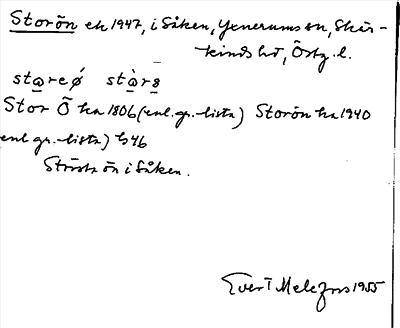 Storön ek 1947, i Såken, Yxnerums sn, Skär-
kinds hd, Östg. l.
stɷreǿ stɷ̀r8
Stor Ö ha 1806 (enl. gr.-lista) Storön ha 1940
enl gr.-lista) b46
Största ön i Såken.
Evert Melefors 1955